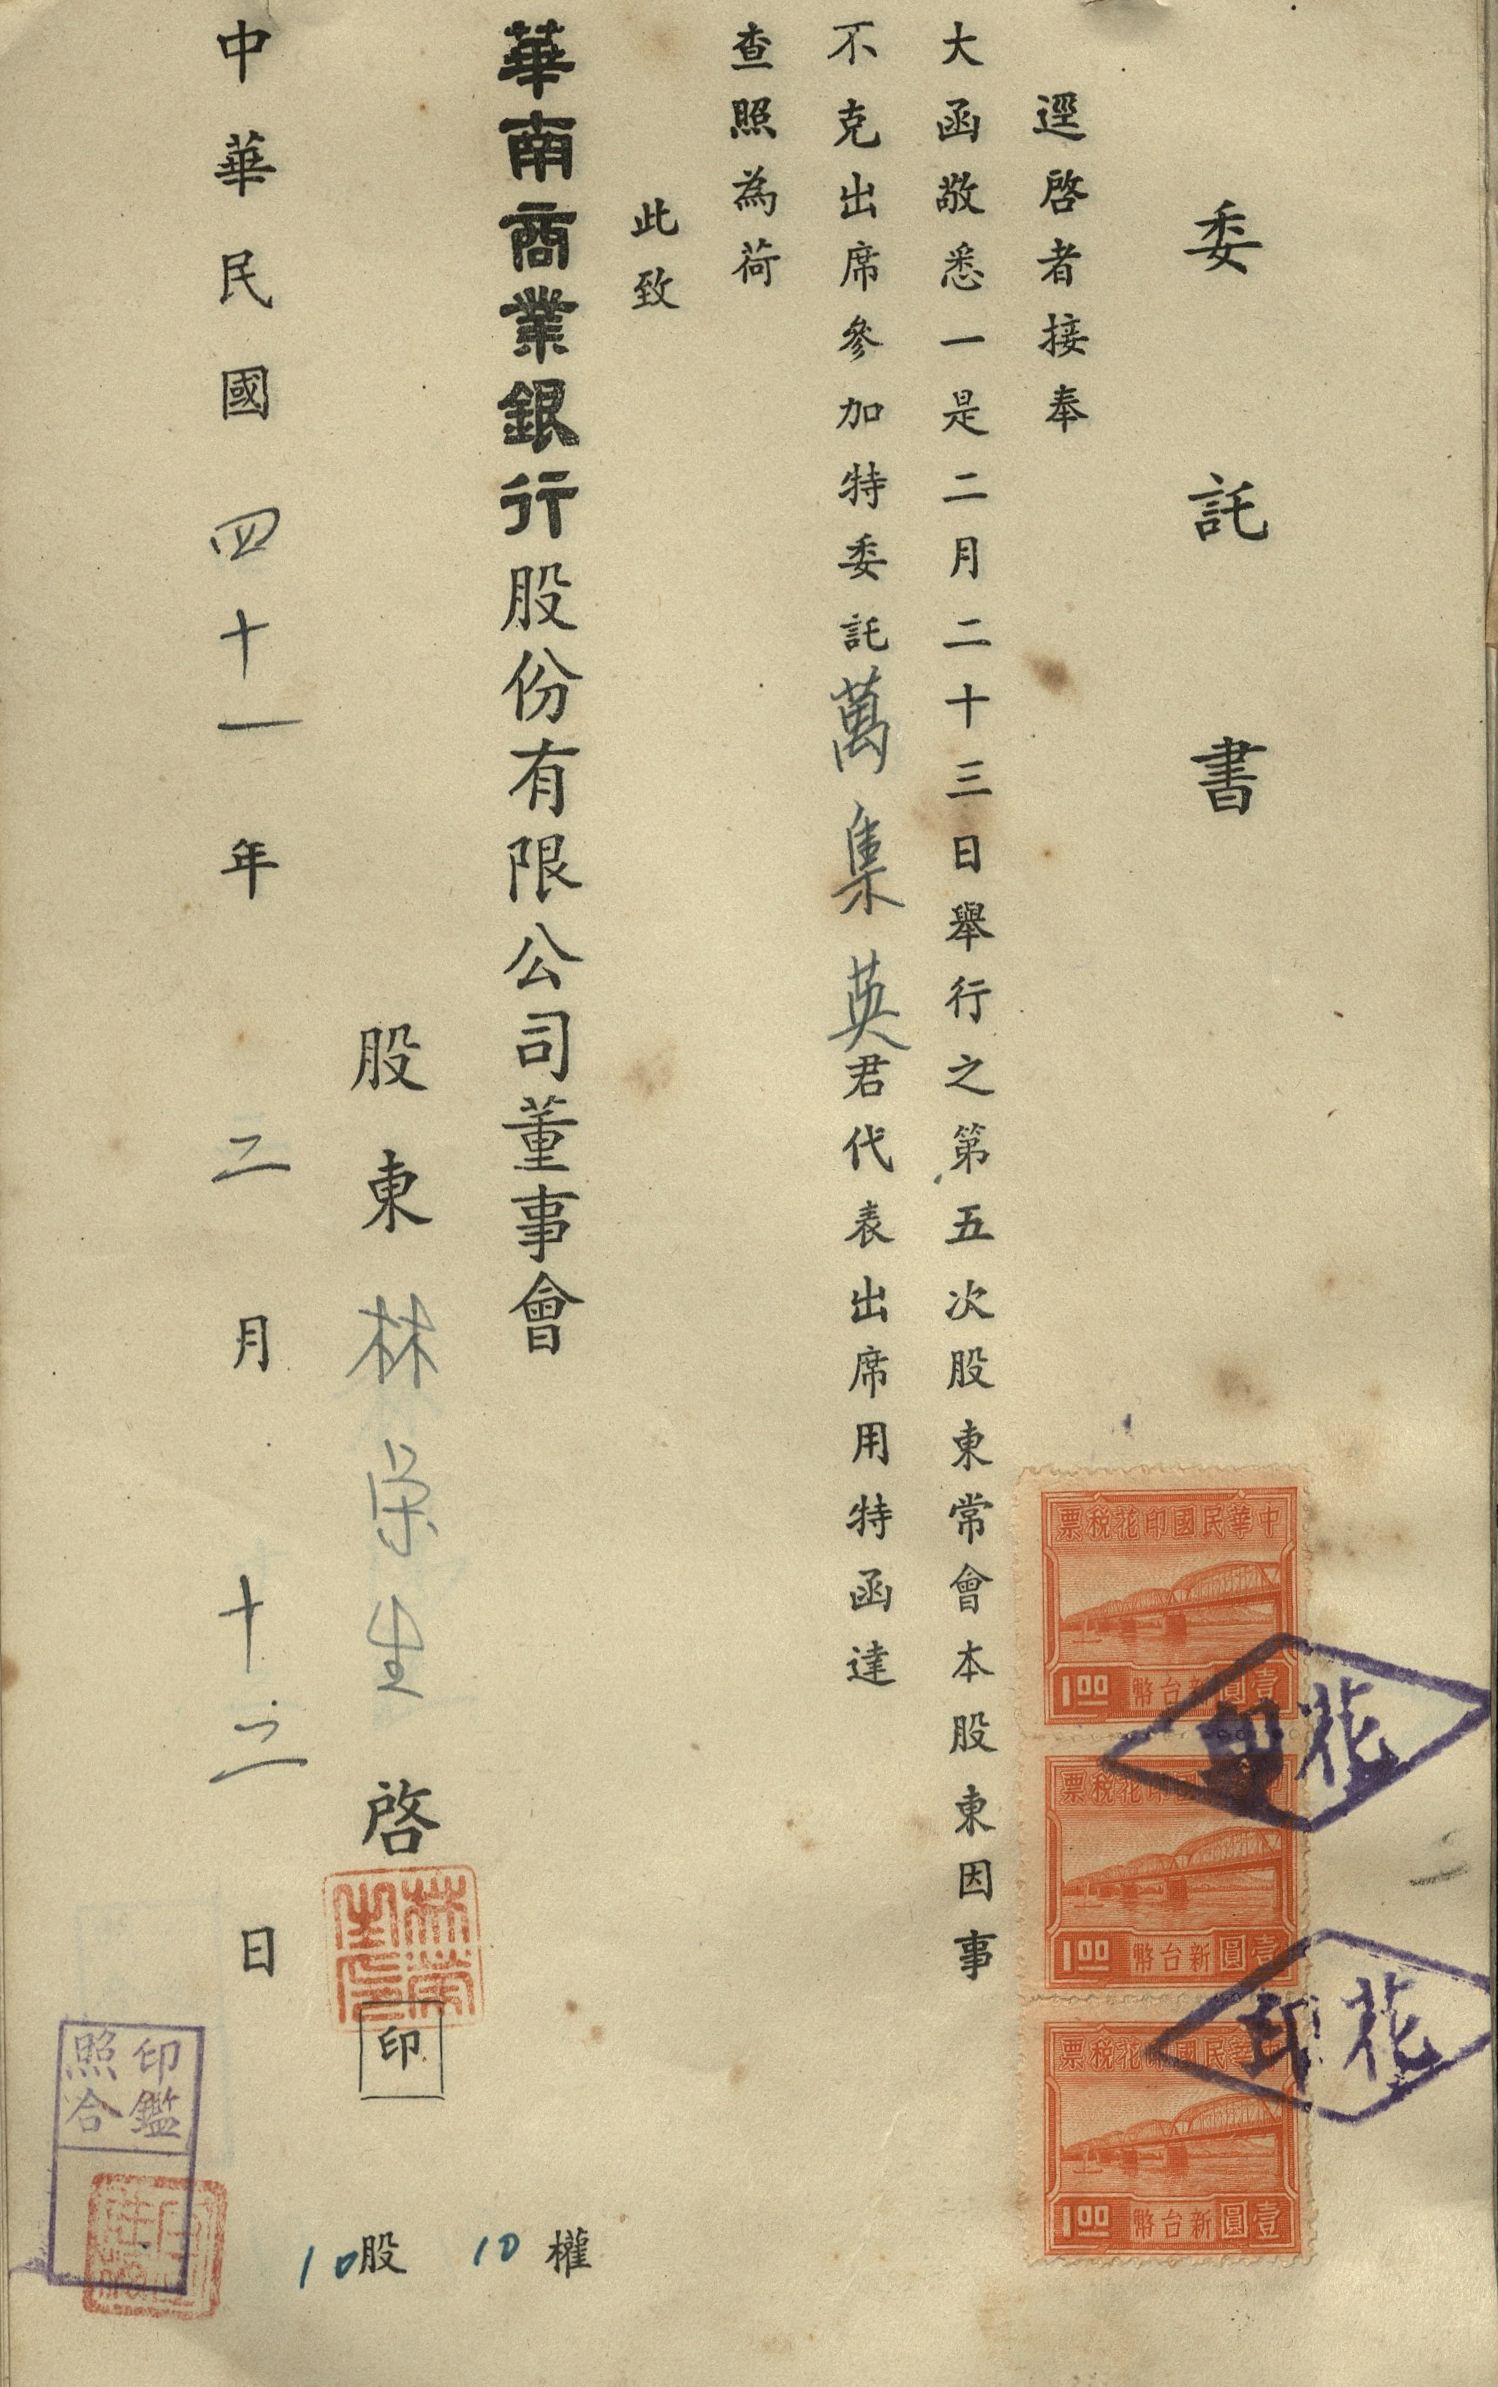 委託書
逕啓者接奉
大函敬悉一是二月二十三日舉行之第五次股東常會本股東因事
不克出席參加特委託萬集英君代表出席用特函達
查照為荷
此致
華南商業銀行股份有限公司董事會
股東林榮生啓
印
10股
10權
中華民國四十一年二月十二日
中華民國印花稅票
壹圓新台幣
1.00
中華民國印花稅票
壹圓新台幣
1.00
中華民國印花稅票
壹圓新台幣
1.00
花印
花印
林榮生印
印鑑
照合